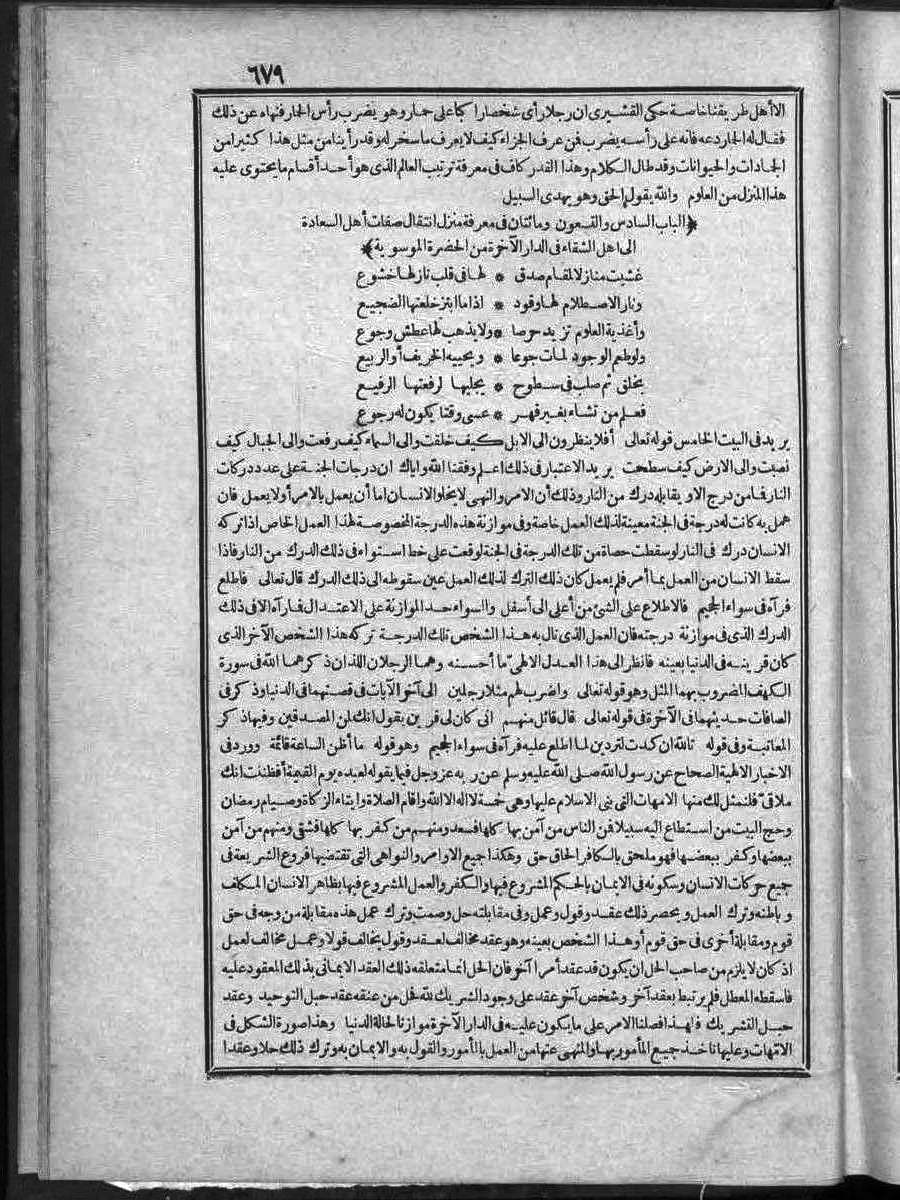 ٦٧٩
الا أهل طريقتنا خاصة حكى القشيرى ان رجلا رأى شخصا راكبا على حمار وهو يضرب رأس الحمار فنهاه عن ذلك
فقال له الحمار دعه فانه على رأسه يضرب فمن عرف الجزاء كيف لا يعرف ما سخر له وقد رأينا من مثل هذا كثيرا من
الجمادات والحيوانات وقد طال الكلام وهذا القدر كاف فى معرفة ترتيب العالم الذى هو أحد أقسام ما يحتوى عليه
هذا المنزل من العلوم والله يقول الحق وهو يهدى السبيل
﴿الباب السادس والتسعون ومائتان فى معرفة منزل انتقال صفات أهل السعادة
الى اهل الشقاء فى الدار الآخرة من الحضرة الموسوية﴾
غشيت منازلا لمقام صدق * لها فى قلب نازلها خشوع
ونار الاصطلام لها وقود * اذا ما ابتز خلعتها الضجيع
وأغذية العلوم تزيد حرصا * ولا يذهب لها عطش وجوع
ولو طعم الوجود لمات جوعا * ويحييه الخريف أو الربيع
بخلق ثم صلب فى سطوح * يجليها لرفعتها الرفيع
فعلم من تشاء بغير قهر * عسى وقتا يكون له رجوع
يريد فى البيت الخامس قوله تعالى أفلا ينظرون الى الابل كيف خلقت والى السماء كيف رفعت والى الجبال كيف
نصبت والى الارض كيف سطحت يريد الاعتبار فى ذلك اعلم وفقنا الله واياك ان درجات الجنة على عدد دركات
النار فما من درج الا ويقابله درك من النار وذلك أن الامر والنهى لا يخلو الانسان اما أن يعمل بالامر أو لا يعمل فان
عمل به كانت له درجة فى الجنة معينة لذلك العمل خاصة وفى موازنة هذه الدرجة المخصوصة لهذا العمل الخاص اذا تركه
الانسان درك فى النار لو سقطت حصاة من تلك الدرجة فى الجنة لوقعت على خط استواء فى ذلك الدرك من النار فاذا
سقط الانسان من العمل بما أمر فلم يعمل كان ذلك الترك لذلك العمل عين سقوطه الى ذلك الدرك قال تعالى فاطلع
فرآه فى سواء الجحيم فالاطلاع على الشئ من أعلى الى أسفل والسواء حد الموازنة على الاعتدال فما رآه الا فى ذلك
الدرك الذى فى موازنة درجته فان العمل الذى نال به هذا الشخص تلك الدرجة تركه هذا الشخص الآخر الذى
كان قرينه فى الدنيا بعينه فانظر الى هذا العدل الالهىّ ما أحسنه وهما الرجلان اللذان ذكرهما الله فى سورة
الكهف المضروب بهما المثل وهو قوله تعالى واضرب لهم مثلا رجلين الى آخر الآيات فى قصتهما فى الدنيا وذكر فى
الصافات حديثهما فى الآخرة فى قوله تعالى قال قائل منهم انى كان لى قرين يقول انك لمن المصدقين وفيها ذكر
المعاتبة وفى قوله تالله ان كدت لتردين لما اطلع عليه فرآه فى سواء الجحيم وهو قوله ما أظن الساعة قائمة وورد فى
الاخبار الالهية الصحاح عن رسول الله صلى الله عليه وسلم عن ربه عز وجل فيما يقوله لعبده يوم القيمة أفظننت انك
ملاقىّ فلنمثل لك منها الامهات التى بنى الاسلام عليها وهى خمسة لا اله الا الله واقام الصلاة وايتاء الزكاة وصيام رمضان
وحج البيت من استطاع اليه سبيلا فمن الناس من آمن بها كلها فسعد ومنهم من كفر بها كلها فشقى ومنهم من آمن
ببعضها وكفر ببعضها فهو ملحق بالكافر الحاق حق وهكذا جميع الاوامر والنواهى التى تقتضيها فروع الشريعة فى
جميع حركات الانسان وسكونه فى الايمان بالحكم المشروع فيها والكفر والعمل المشروع فيها بظاهر الانسان المكلف
وباطنه وترك العمل ويحصر ذلك عقد وقول وعمل وفى مقابلته حل وصمت وترك عمل هذه مقابلة من وجه فى حق
قوم ومقابلة أخرى فى حق قوم أو هذا الشخص بعينه وهو عقد مخالف لعقد وقول يخالف قولا وعمل مخالف لعمل
اذ كان لا يلزم من صاحب الحل ان يكون قد عقد أمرا آخر فان الحل انما متعلقه ذلك العقد الايمانى بذلك المعقود عليه
فاسقطه المعطل فلم يرتبط بعقد آخر وشخص آخر عقد على وجود الشريك لله فحل من عنقه عقد حبل التوحيد وعقد
حبل التشريك فلهذا فصلنا الامر على ما يكون عليه فى الدار الآخرة موازنا لحالة الدنيا وهذا صورة الشكل فى
الامّهات وعليها ناخذ جميع المأمور بها والمنهى عنها من العمل بالمأمور والقول به والايمان به وترك ذلك حلا وعقدا